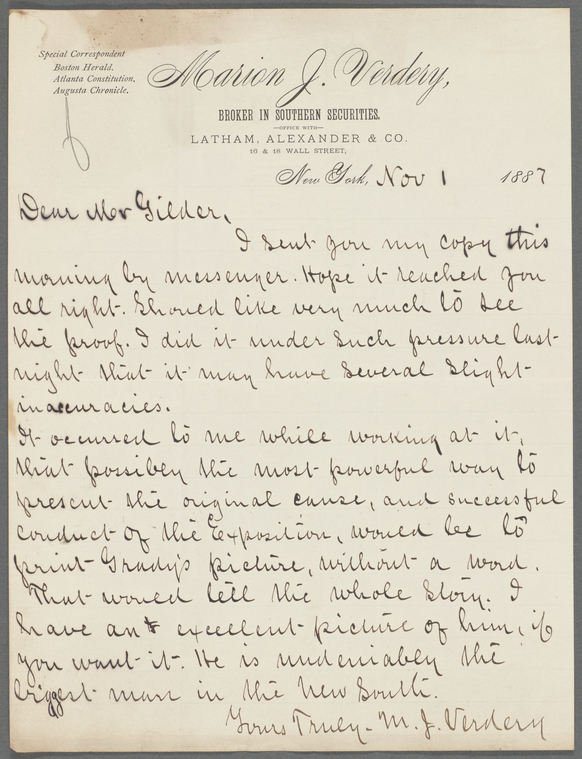 Special Correspondent
Boston Herald.
Atlanta Constitution.
Augusta Chronicle.
Marion J. Verdery,
BROKER IN SOUTHERN SECURITIES.
—OFFICE WITH—
LATHAM, ALEXANDER & CO.
16 & 18 WALL STREET,
New York, Nov 1 1887
Dear Mr Gilder,
I sent you my copy this
morning by messenger. Hope it reached you
all right. Should like very much to see
the proof. I did it under such pressure last
night that it may have several slight
inaccuracies.
It occurred to me while working at it,
that possibly the most powerful way to
present the original cause, and successful
conduct of the Exposition, would be to
print Grady's picture, without a word.
That would tell the whole story. I
have an excellent picture of him, if
you want it. He is undeniably the
biggest man in the New South.
Yours Truly - M. J. Verdery